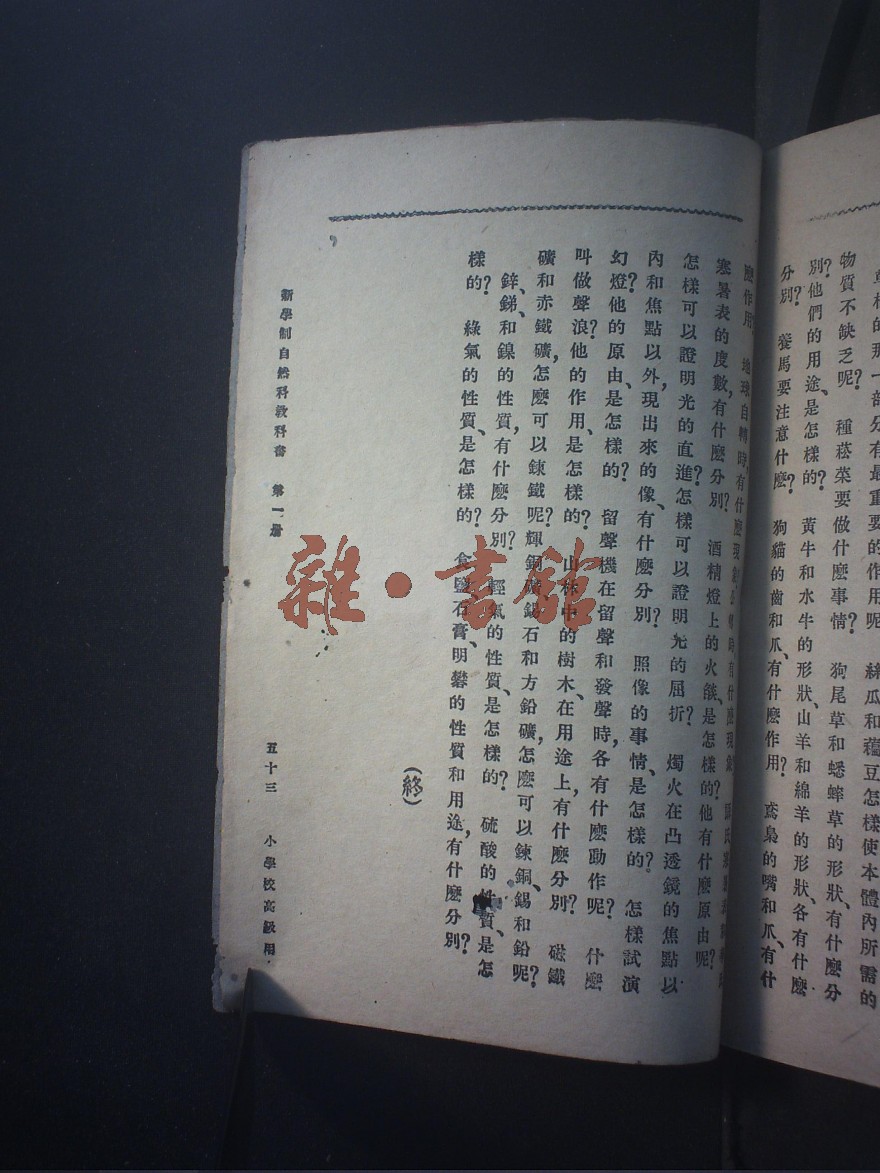 草棉的那一部分有最重要的作用呢 絲瓜和藊豆怎樣使本體內所需的
物質不缺乏呢? 種菘菜要做什麽事情? 狗尾草和蟋蟀草的形狀、有什麽分
別?他們的用途、是怎樣的? 黃牛和水牛的形狀、山羊和綿羊的形狀、各有什麽
分別? 養馬要注意什麽? 狗貓的齒和爪、有什麽作用? 鳶梟的嘴和爪、有什
麽作用? 地球自轉時,有什麽現象?公轉時有什麽現象?
寒暑表的度數,有什麽分別? 酒精燈上的火燄、是怎樣的?他有什麽原由呢?
怎樣可以證明光的直進?怎樣可以證明光的屈折? 燭火在凸透鏡的焦點以
內和焦點以外,現出來的像、有什麽分別? 照像的事情、是怎樣的? 怎樣試演
幻燈?他的原由、是怎樣的? 留聲機在留聲和發聲時,各有什麽動作呢? 什麽
叫做聲浪?他的作用、是怎樣的? 山林中的樹木、在用途上,有什麽分別? 磁鐵
礦和赤鐵礦,怎麽可以鍊鐵呢?輝銅礦錫石和方鉛礦,怎麽可以鍊銅、錫和鉛呢?
鋅、銻、和鎳的性質,有什麽分別? 輕氣的性質、是怎樣的? 硫酸的性質、是怎
樣的? 綠氣的性質、是怎樣的? 食鹽石膏、明礬的性質和用途,有什麽分別?
(終)
新學制自然科教科書 第一册 五十三 小學校高級用
雜·書館